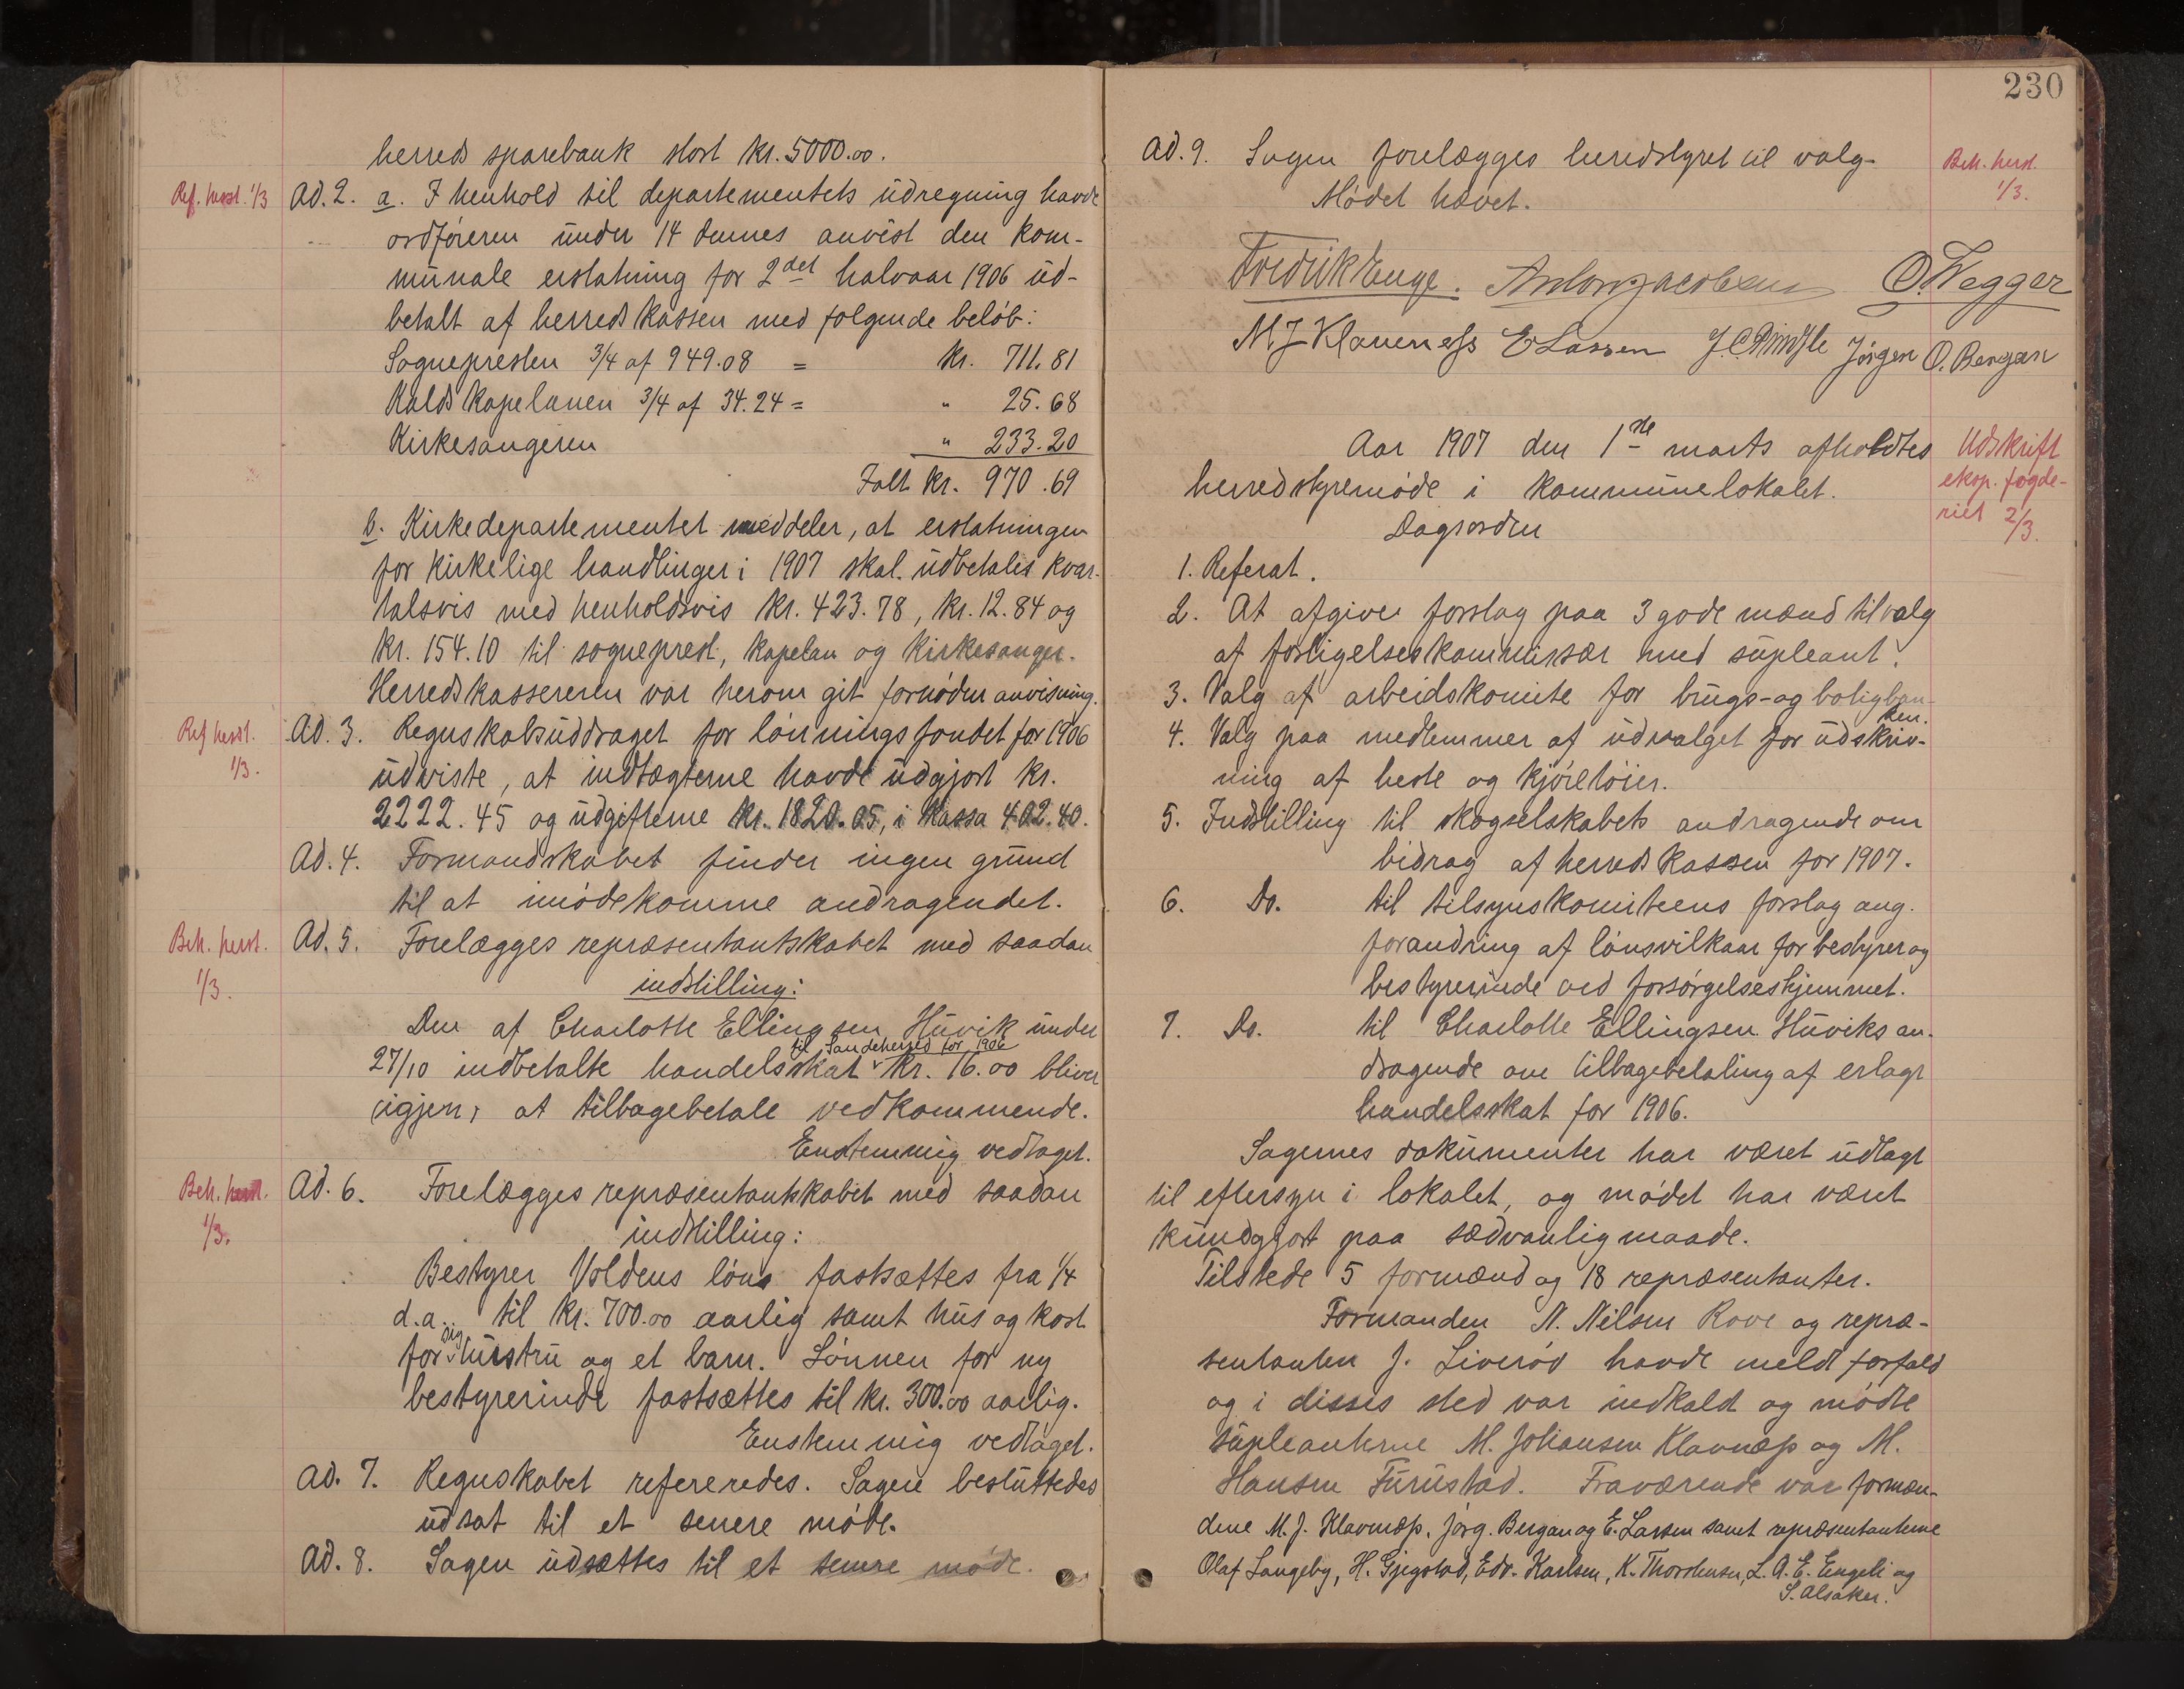 herreds sparebank stort kr. 5000.00.
Ref. herst. 1/3
Ad. 2. a. I henhold til departementets udregning havde
ordføreren under 14 dennes anvist den kom-
munale erstatning for 2det halvaar 1906 ud-
betalt af herredskassen med følgende beløb:
Sognepresten 3/4 af 949.08 = kr. 711.81
Kaldskapelanen 3/4 af 34.24 = " 25.68
Kirkesangeren " 233.20
Ialt kr. 970.69
b. Kirkedepartementet meddeler, at erstatningen
for kirkelige handlinger i 1907 skal udbetales kvar-
talsvis med henholdsvis kr. 423.78, kr. 12.84 og
kr. 154.10 til sogneprest, kapelan og kirkesanger.
Herredskassereren var herom git fornøden anvisning.
Ref herst.
1/3.
Ad. 3. Regnskabsuddraget for lønningsfondet for 1906
udviste, at indtægterne havde udgjort kr.
2222.45 og udgifterne kr. 1820.05, i kassa 402.40.
Ad. 4. Formandskabet finder ingen grund
til at imødekomme andragendet.
Beh. herst.
1/3.
Ad. 5. Forelægges repræsentantskabet med saadan
indstilling:
Den af Charlotte Ellingsen Huvik under
til Sandeherred for 1906
27/10 indbetalte handelsskat kr. 16.00 bliver
igjen, at tilbagebetale vedkommende.
Enstemmig vedtaget.
Beh. herst.
1/3.
Ad. 6. Forelægges repræsentantskabet med saadan
indstilling:
Bestyrer Voldens løns fastsættes fra 1/4
d.a. til kr. 700.00 aarlig samt hus og kost
for sig, hustru og et barn. Lønnen for ny
bestyrerinde fastsættes til kr. 300.00 aarlig.
Enstemmig vedtaget.
Ad. 7. Regnskabet refereredes. Sagen besluttedes
udsat til et senere møde.
Ad. 8. Sagen udsættes til et senere møde.
230
Ad. 9. Sagen forelægges herredstyret til valg.
Mødet hævet.
Beh. herst.
1/3.
Fredrik Enge. Anton Jacobsen O. Wegger
M J Klaveness E Larsen J. C. Jørgen O. Bergan
Aar 1907 den 1ste marts afholdtes
herredstyremøde i kommunelokalet.
Udskrift
eksp. fogde-
riet 2/3.
Dagsorden
1. Referat.
2. At afgive forslag paa 3 gode mænd til valg
af forligelseskommissær med supleant.
3. Valg af arbeidskomite for brugs- og boligban-
ken.
4. Valg paa medlemmer af udvalget for udskriv-
ning af heste og kjøretøier.
5. Indstilling til skogselskabets andragende om
bidrag af herredskassen for 1907.
6. Do. til tilsynskomiteens forslag ang.
forandring af lønsvilkaar for bestyrer og
bestyrerinde ved forsørgelseshjemmet.
7. Do. til Charlotte Ellingsen Huviks an-
dragende om tilbagebetaling af erlagt
handelsskat for 1906.
Sagernes dokumenter har været udlagt
til eftersyn i lokalet, og mødet har været
kundgjort paa sædvanlig maade.
Tilstede 5 formænd og 18 repræsentanter.
Formanden N. Nilsen Rove og repræ-
sentanten J. Liverød havde meldt forfald
og i disses sted var indkaldt og mødte
supleanterne M. Johansen Klavnæss og M.
Hansen Furustad. Fraværende var formæn-
dene M. J. Klavnæss, Jørg. Bergan og E. Larsen samt repræsentanterne
Olaf Langeby, H. Gjegstad, Edv. Karlsen, K. Thorstensen, L. A. E. Engeli og
S. Alsaker.